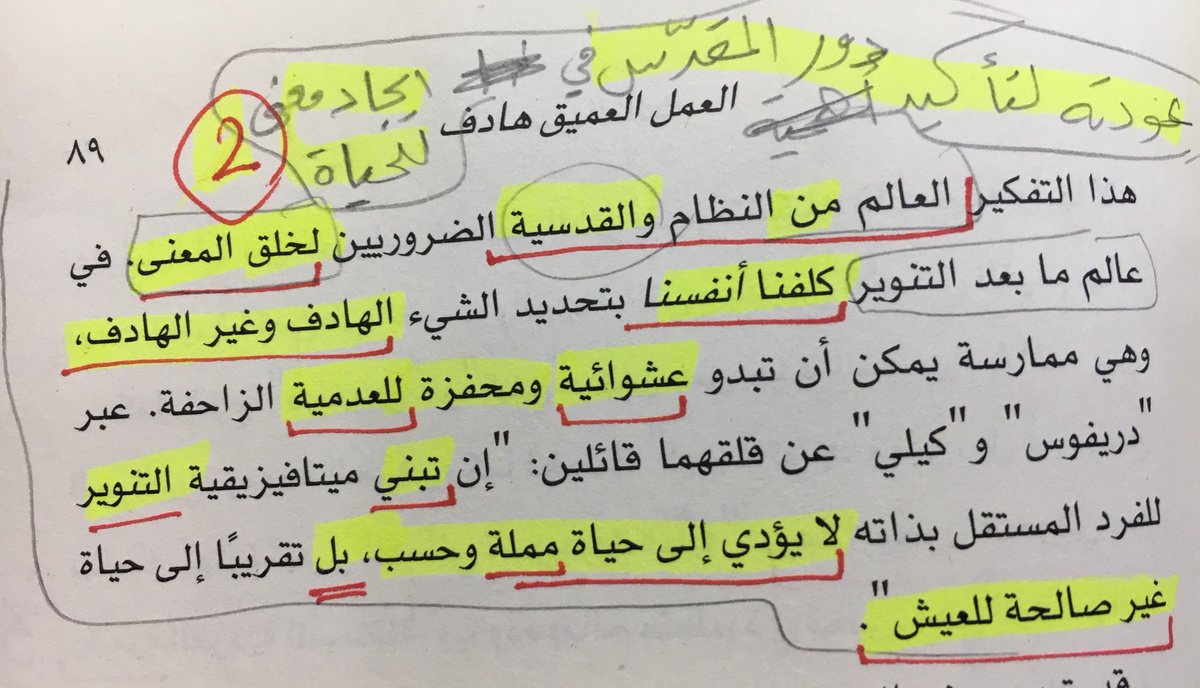 عودة لتأكيد دور المقدّس في ايجاد معنى
للحياة
2
العمل العميق هادف
٨٩
هذا التفكير العالم من النظام والقدسية الضروريين لخلق المعنى. في
عالم ما بعد التنوير كلفنا أنفسنا بتحديد الشيء الهادف وغير الهادف،
وهي ممارسة يمكن أن تبدو عشوائية ومحفزة للعدمية الزاحفة. عبر
"دريفوس" و"كيلي" عن قلقهما قائلين: "إن تبني ميتافيزيقية التنوير
للفرد المستقل بذاته لا يؤدي إلى حياة مملة وحسب، بل تقريبًا إلى حياة
غير صالحة للعيش".